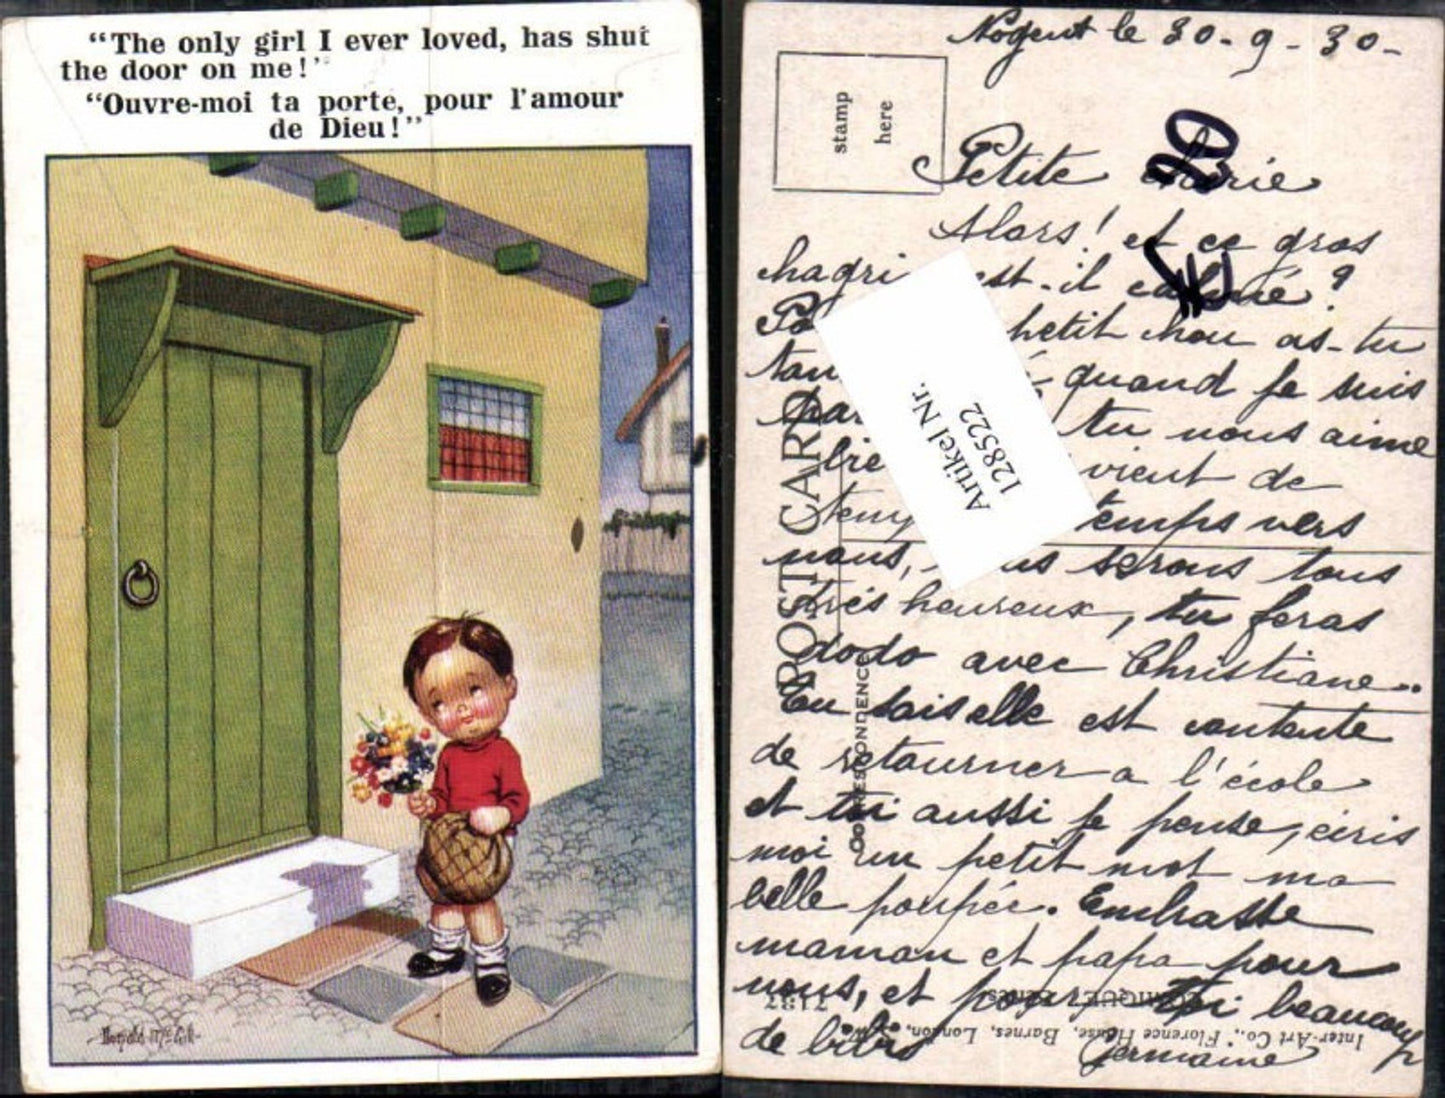 “The only girl I ever loved, has shut
the door on me!”
“Ouvre-moi ta porte, pour l'amour
de Dieu!”
Donald McGill
Nogent le 30-9-30-
stamp
here
20
Petite chérie
Alors! et ce gros
chagri est-il calmé?
Po petit chou as-tu
tan quand je suis
par tu nous aime
bie vient de
temp temps vers
nous, us serons tous
très heureux, tu feras
dodo avec Christiane..
Tu sais elle est contente
de retourner a l'école
et toi aussi je pense, écris
moi un petit mot ma
belle poupée. Embrasse
maman et papa pour
nous, et pour toi beaucoup
de bibis
Germaine
Artikel Nr.
128522
POST CARD
CORRESPONDENCE
7187
Inter-Art Co., Florence House, Barnes, London,